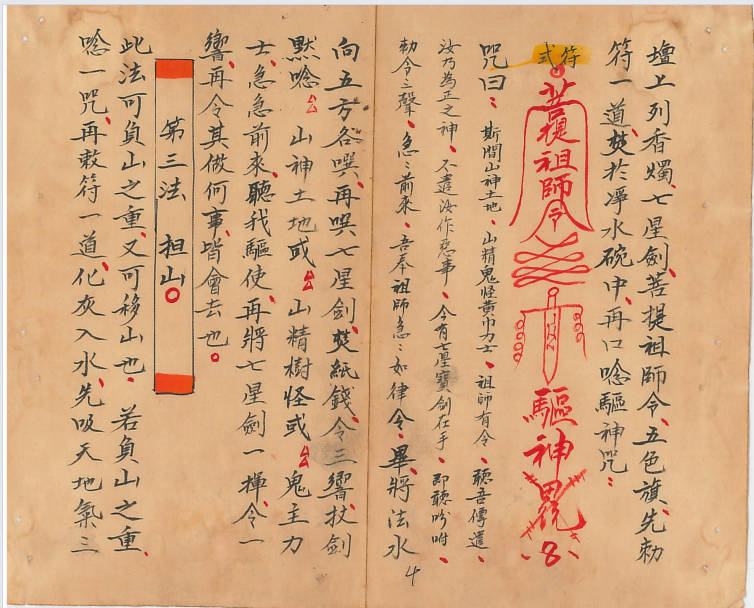 壇上列香燭、七星劍、菩提祖師令、五色旗、先勅
符一道、焚於凈水碗中、再口唸驅神咒：
符式
菩提祖師令
驅神
咒曰：斯間山神土地、山精鬼怪黃巾力士、祖師有令、聽吾傳遣、
汝乃為正之神、不遣汝作惡事、今有七星寶劍在手、即聽吩咐、
勅令三聲、急ミ前來、吾奉祖師急ミ如律令、畢、將法水
4
向五方各噀、再噀七星劍、焚紙錢、令三響、扙劍
默唸、山神土地或 山精樹怪或 鬼主力
士、急急前來、聽我驅使、再將七星劍一揮、令一
響、再令其做何事、皆會去也。
第三法 担山
此法可負山之重、又可移山也、若負山之重、
唸一咒、再敕符一道、化灰入水、先吸天地氣三